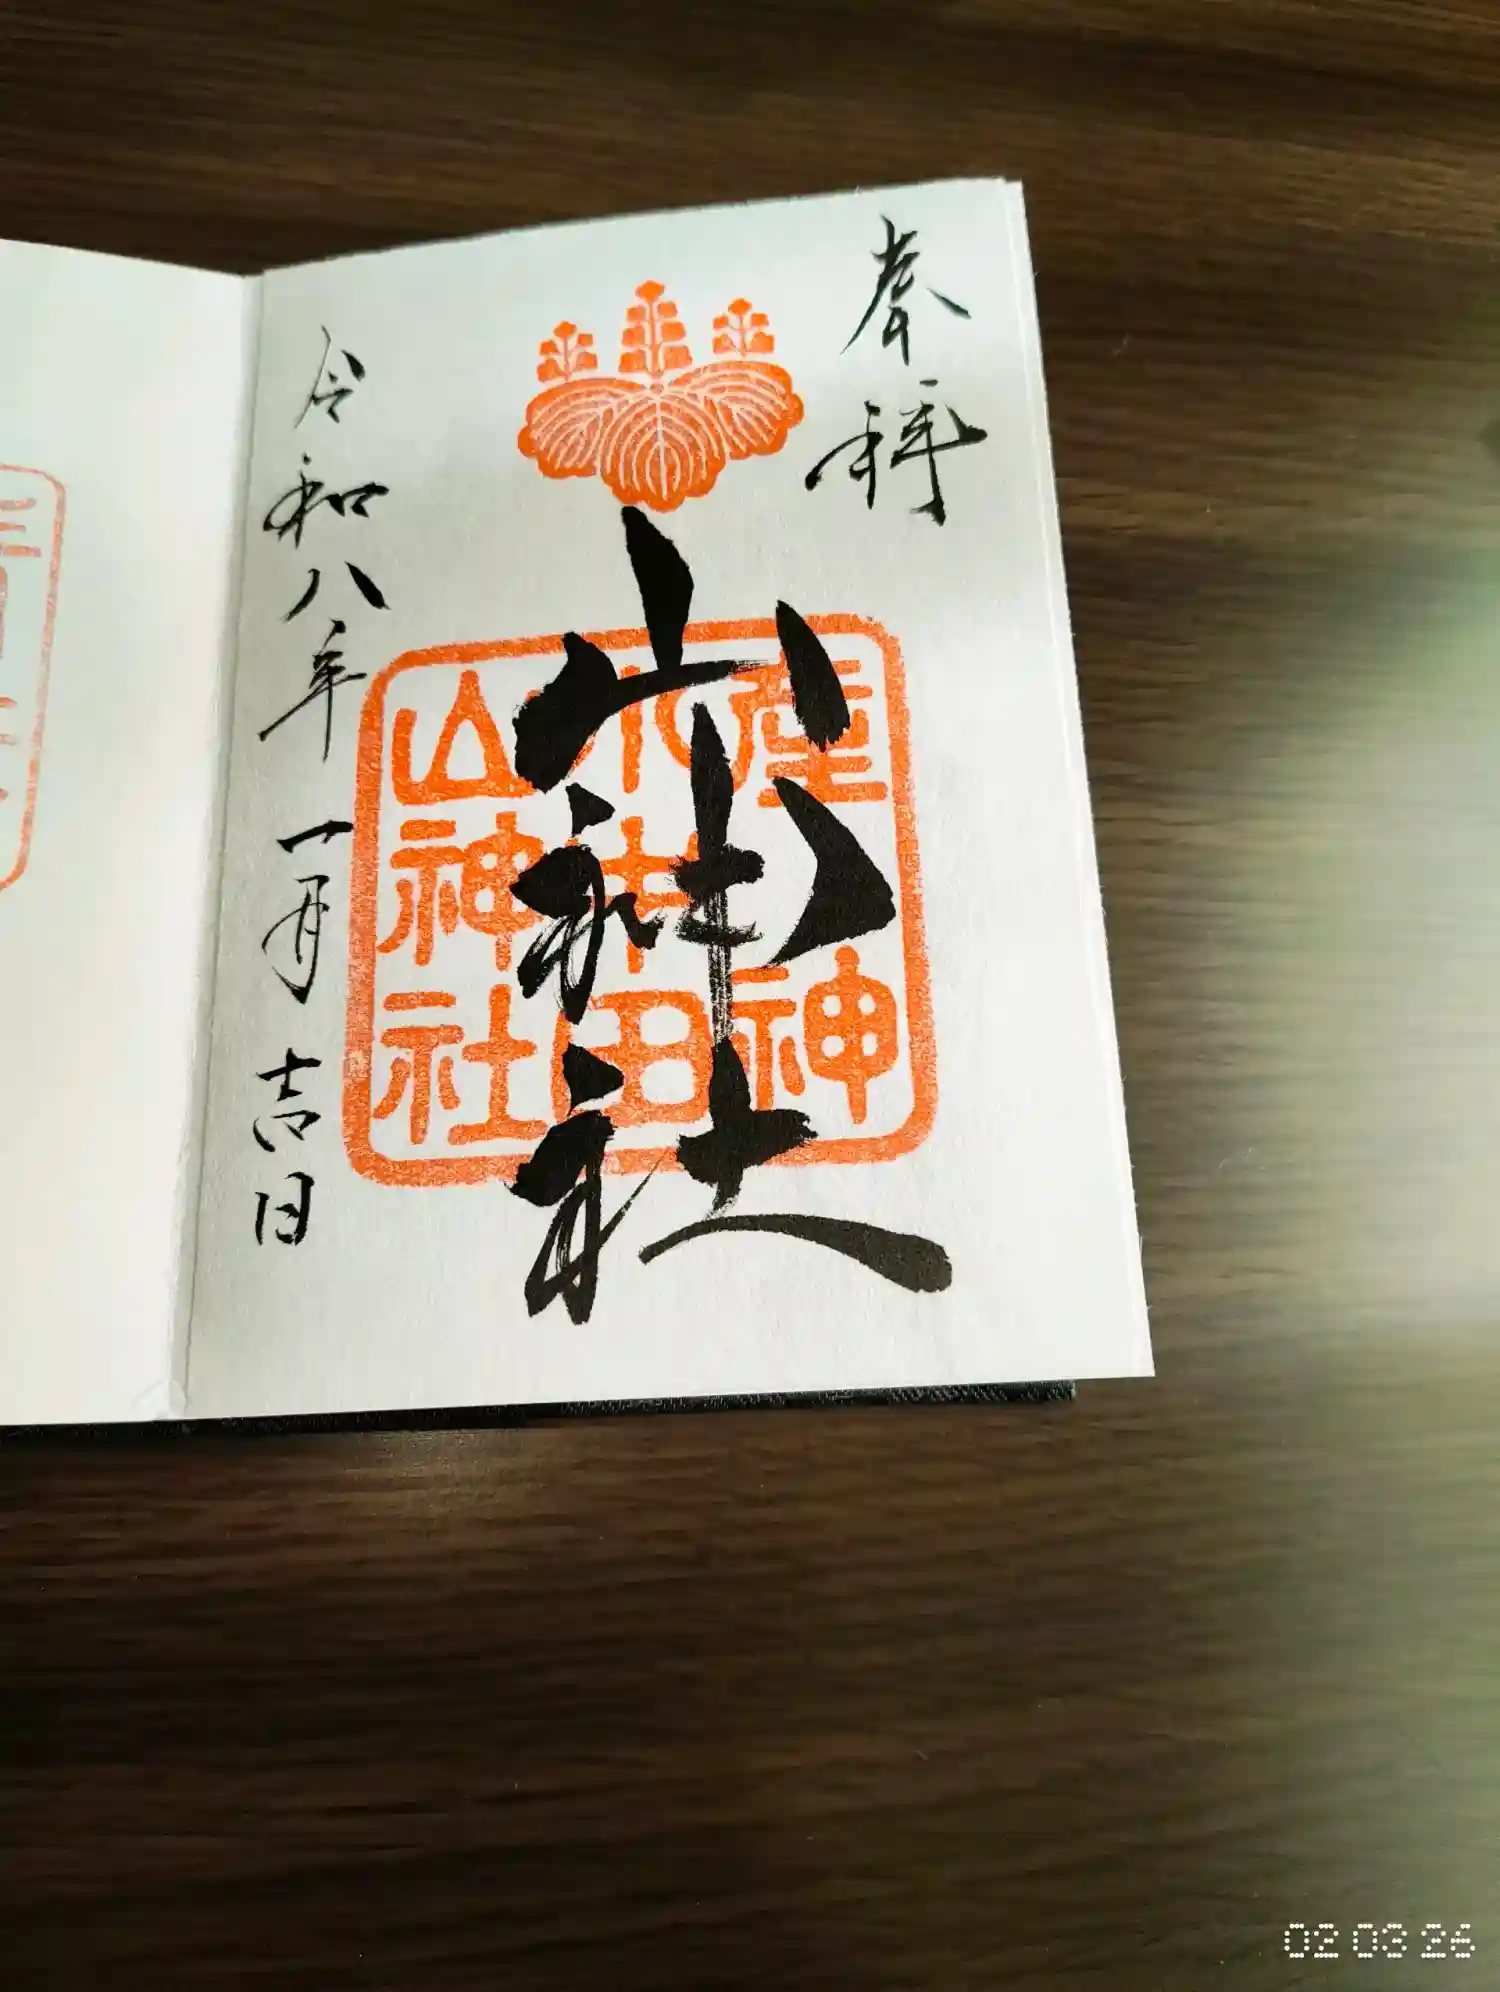 奉拝
山神社
産神
小牛田
山神社
令和八年一月吉日
02 03 26